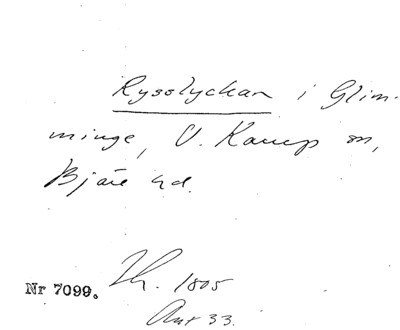 Rysslyckan i Glim-
minge, V. Karup sn,
Bjäre hd.
Nr 7099. Th. 1805
Ant 33.